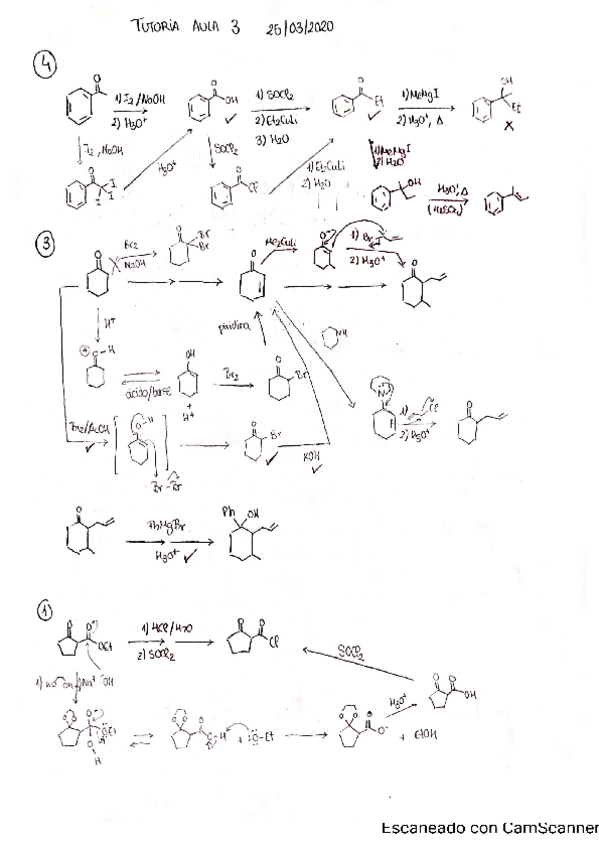 TUTORIA AULA 3 25/03/2020
④
O
1) I2/NaOH
2) H3O+
O
OH
✓
1) SOCl2
2) Et2CuLi
3) H2O
O
Et
✓
1) MeMgI
2) H3O+, Δ
OH
Et
X
I2, NaOH
H3O+
SOCl2
1) Et2CuLi
2) H2O
1) MeMgI
2) H2O
O
I
I
I
O
Cl
OH
H3O+, Δ
(H2SO4)
③
O
Br2
NaOH
O
Br
Br
O
Me2CuLi
O-
1) Br
2) H3O+
O
H+
piridina
NH
O-H
ácido/base
OH
+
H+
Br2
O
Br
N
1) Cl
2) H3O+
O
Br2/AcOH
✓
O-H
Br-Br
O
Br
✓
KOH
✓
O
PhMgBr
H3O+ ✓
Ph OH
①
O
O
OEt
1) HCl/H2O
2) SOCl2
O
O
Cl
SOCl2
O
O
OH
H3O+
O-
OEt
O
H
+ O-Et
O
O-
+ EtOH
Escaneado con CamScanner